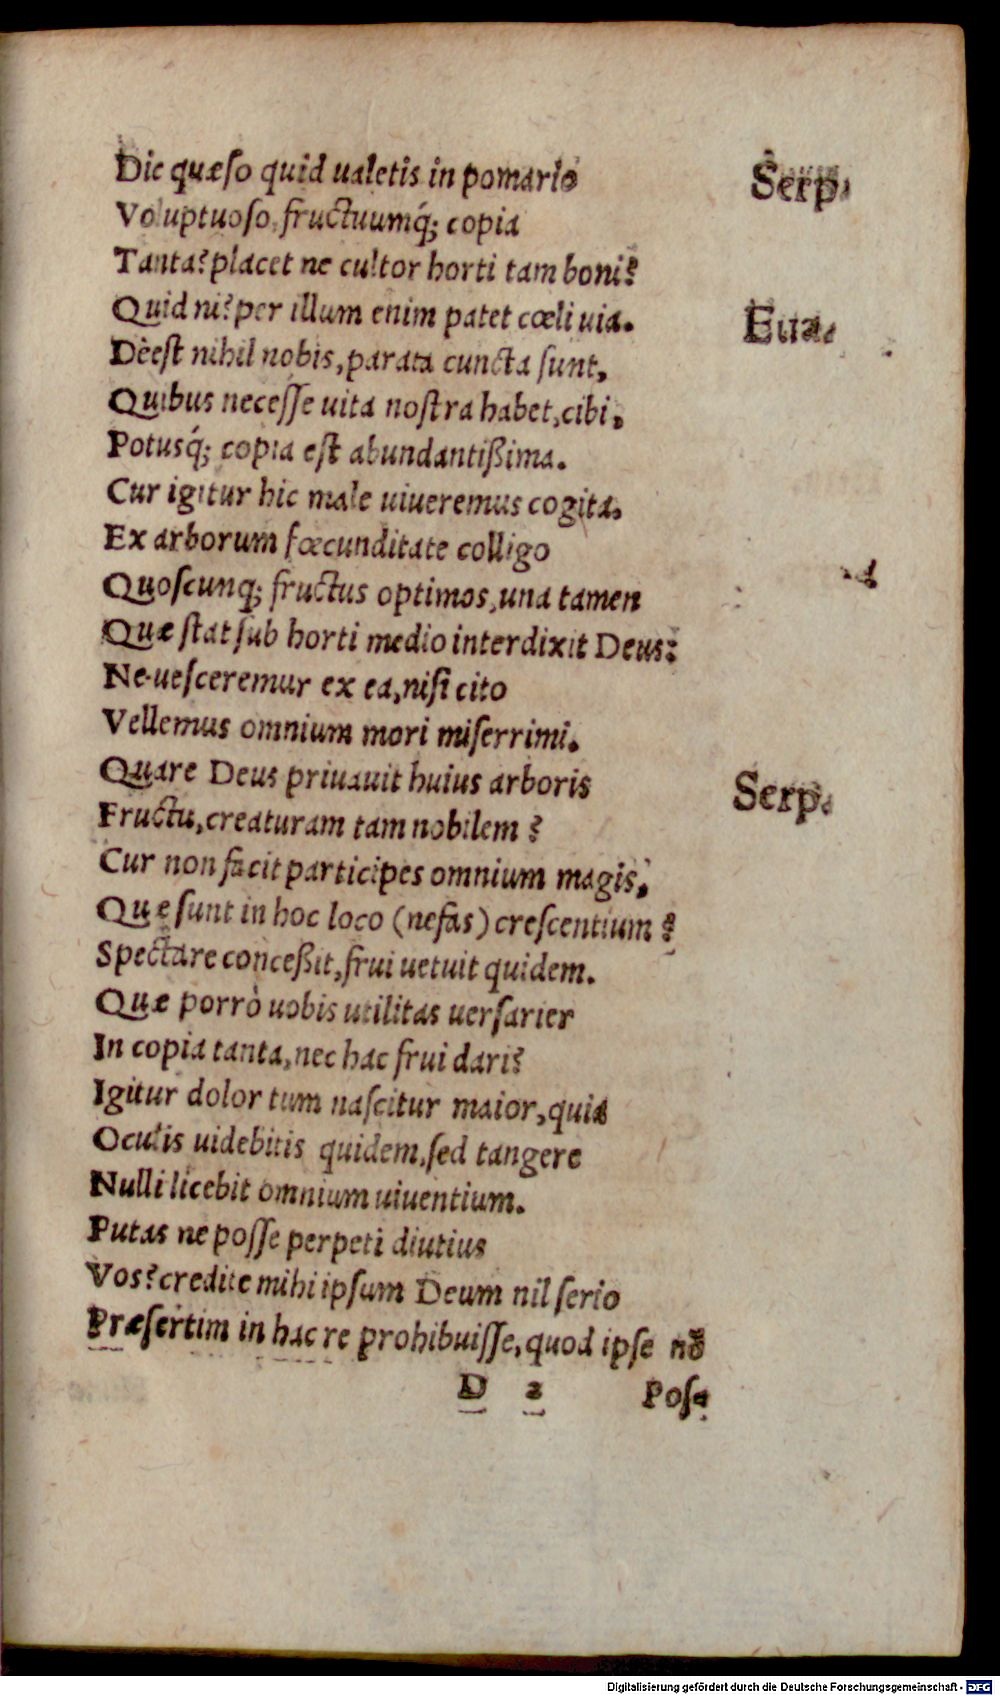 Dic quæso quid ualetis in pomario
Serp.
Voluptuoso, fructuumq́; copia
Tanta? placet ne cultor horti tam boni?
Quid ni? per illum enim patet cœli uia.
Eua.
Deest nihil nobis, parata cuncta sunt,
Quibus necesse uita nostra habet, cibi,
Potusq́; copia est abundantißima.
Cur igitur hic male uiueremus cogita,
Ex arborum fœcunditate colligo
Quoscunq; fructus optimos, una tamen
Quæ stat sub horti medio interdixit Deus:
Ne uesceremur ex ea, nisi cito
Vellemus omnium mori miserrimi.
Quare Deus priuauit huius arboris
Serp.
Fructu, creaturam tam nobilem?
Cur non facit participes omnium magis,
Que sunt in hoc loco (nefas) crescentium?
Spectare conceßit, frui uetuit quidem.
Quæ porrò uobis utilitas uersarier
In copia tanta, nec hac frui dari?
Igitur dolor tum nascitur maior, quia
Oculis uidebitis quidem, sed tangere
Nulli licebit omnium uiuentium.
Putas ne posse perpeti diutius
Vos? credite mihi ipsum Deum nil serio
Præsertim in hac re prohibuisse, quod ipse nō
D 2 Pos=
Digitalisierung gefördert durch die Deutsche Forschungsgemeinschaft - DFG